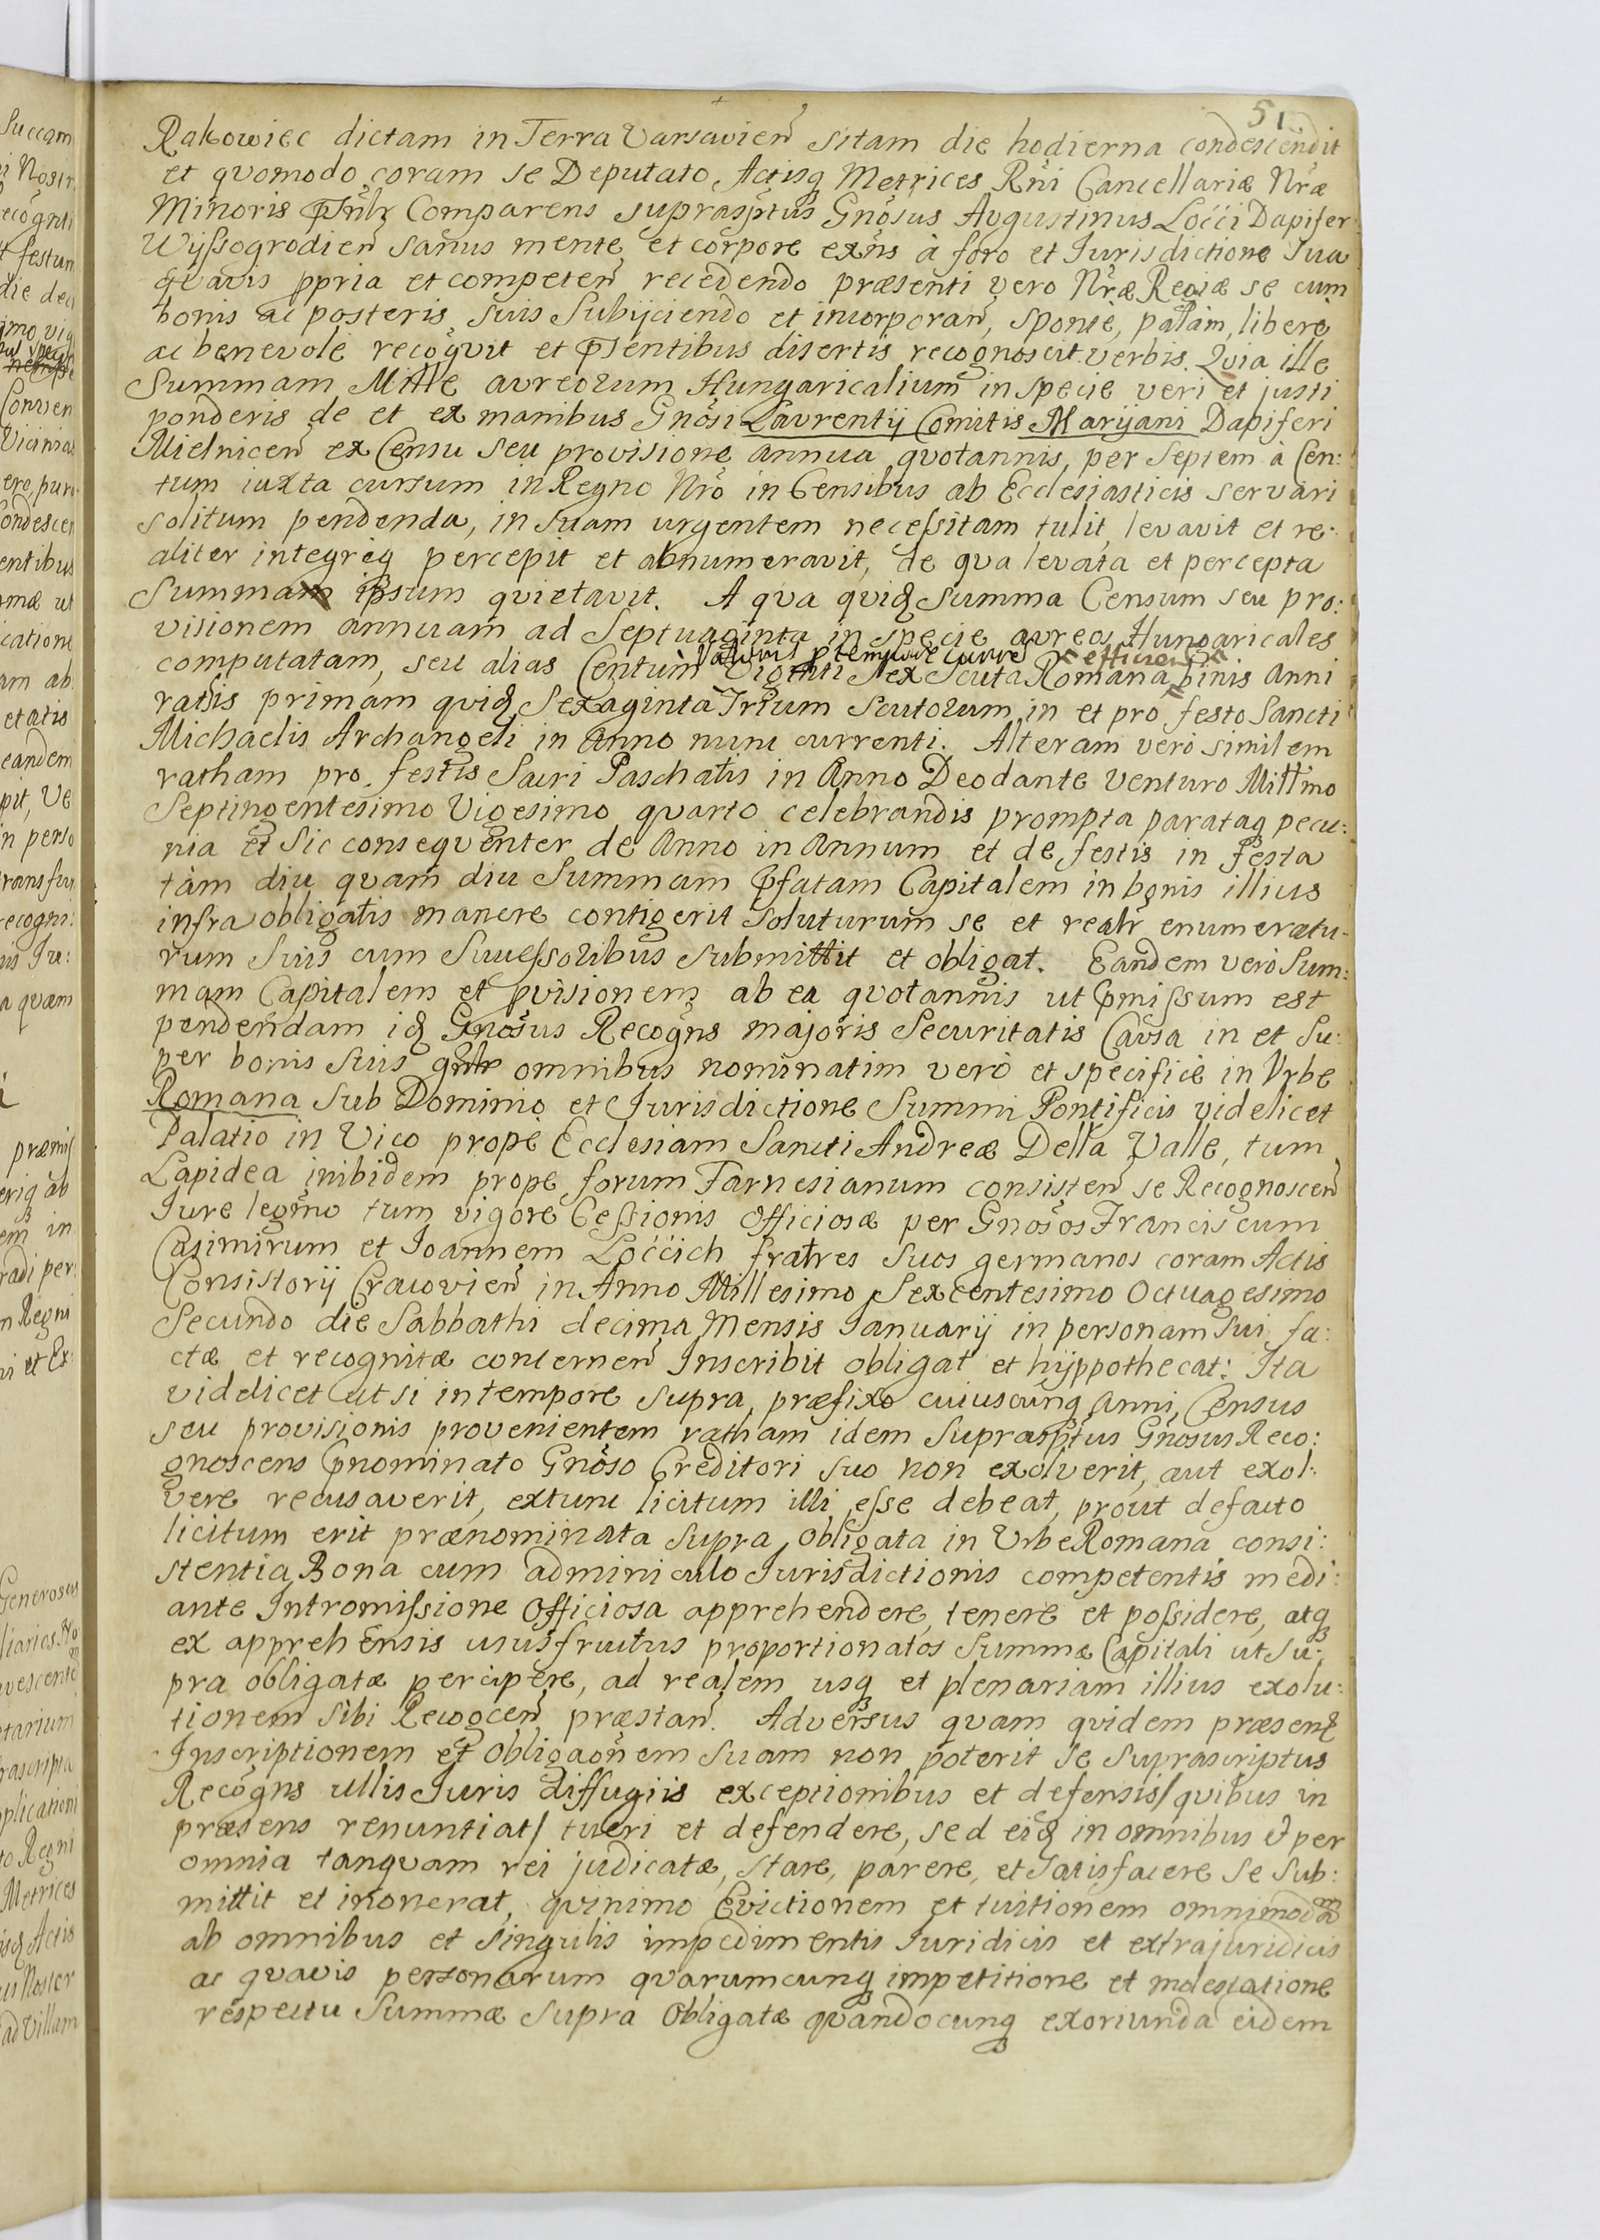 51
Rakowiec dictam in Terra Varsavien̄ sitam die hodierna condescendit
et qvomodo coram se Deputato Actisq Metrices Rñi Cancellariæ Nræ
Minoris Comparens suprasptus Gnosus Avgustinus Locci Dapifer
Wijssogrodien̄ sanus mente et corpore exñs à foro et Jurisdictione sua
qvavis ppria et competen̄ recedendo præsenti vero Nræ Regiæ se cum
bonis ac posteris suis subijciendo et incorporan̄, sponte, palàm, liberè
ac benevolè recoqvit et Psentibus disertis recognoscit verbis. Qvia ille
Summam Mille avreorum Hungaricalium in specie veri et justi
ponderis de et ex manibus Gnosi Lavrentij Comitis Marijani Dapiferi
Mielnicen̄ ex Censu seu provisione annua qvotannis, per Septem à Cen:
tum iuxta cursum in Regno Nro in Censibus ab Ecclesiasticis servari
solitum pendenda, in suam urgentem necessitam tulit, levavit et re:
aliter integreq percepit et abnumeravit, de qva levata et percepta
Summam ipsum qvietavit. A qva qvidȝ Summa Censum seu pro:
visionem annuam ad Septuaginta in specie avreos Hungaricales
computatam, seu alias Centum Viginti Sex Scuta Romana binis Anni
efficien̄
rathis primam qvidȝ Sexaginta Trium Scutorum in et pro festo Sancti
Michaelis Archangeli in Anno nunc currenti. Alteram verò similem
ratham pro festis Sacri Paschatis in Anno Deodante venturo Millmo
Septingentesimo Vigesimo qvarto celebrandis prompta parataq pecu:
nia et sic conseqventer de Anno in Annum et de festis in festa
tàm diu qvam diu Summam Pfatam Capitalem in bonis illius
infra obligatis manere contigerit soluturum se et realr enumeratu-
rum suis cum Successoribus submittit et obligat. Eandem verò Sum:
mam Capitalem et pvisionem ab ea qvotannis ut Pmissum est
pendendam idȝ Gnosus Recogns majoris Securitatis Cavsa in et su:
per bonis suis gnlr omnibus nominatim verò et specificè in Vrbe
Romana sub Dominio et Jurisdictione Summi Pontificis videlicet
Palatio in Vico propè Ecclesiam Sancti Andreæ Della Valle, tum
Lapidea inibidem propè forum Farnesianum consisten̄ se Recognoscen̄
Jure legmo tum vigore Cessionis Officiosæ per Gnosos Franciscum
Casimirum et Joannem Locćich fratres suos germanos coram Actis
Consistorij Cracovien̄ in Anno Millesimo Sexcentesimo Octuagesimo
Secundo die Sabbathi decima Mensis Januarij in personam sui fa:
ctæ et recognitæ concernen̄ Inscribit obligat et hijppothecat: Ita
videlicet ut si in tempore supra præfixo cuiuscunq anni, Census
seu provisionis provenientem ratham idem suprasptus Gnosus Reco:
gnoscens Pnominato Gnoso Creditori suo non exolverit, aut exol:
vere recusaverit, extunc licitum illi esse debeat, prout defacto
licitum erit prænominata supra obligata in Vrbe Romana consi:
stentia Bona cum adminiculo Jurisdictionis competentis medi:
ante Intromissione Officiosa apprehendere, tenere et possidere, atq
ex apprehensis ususfructus proportionatos Summæ Capitali ut su:
pra obligatæ percipere, ad realem usq et plenariam illius exolu:
tionem sibi Recogcen̄ præstan̄. Adversus qvam qvidem præsentȝ
Inscriptionem et obligaonem suam non poterit se suprascriptus
Recogns ullis Juris diffugiis exceptionibus et defensis/ qvibus in
præsens renuntiat/ tueri et defendere, sed eidȝ in omnibus et per
omnia tanqvam rei judicatæ, stare, parere, et satisfacere se sub:
mittit et inonerat, qvinimo Evictionem et tuitionem omnimodā
ab omnibus et singulis impedimentis Juridicis et extrajuridicis
ac qvavis personarum qvarumcunq impetitione et molestatione
respectu Summæ supra obligatæ qvandocunq exoriunda eidem